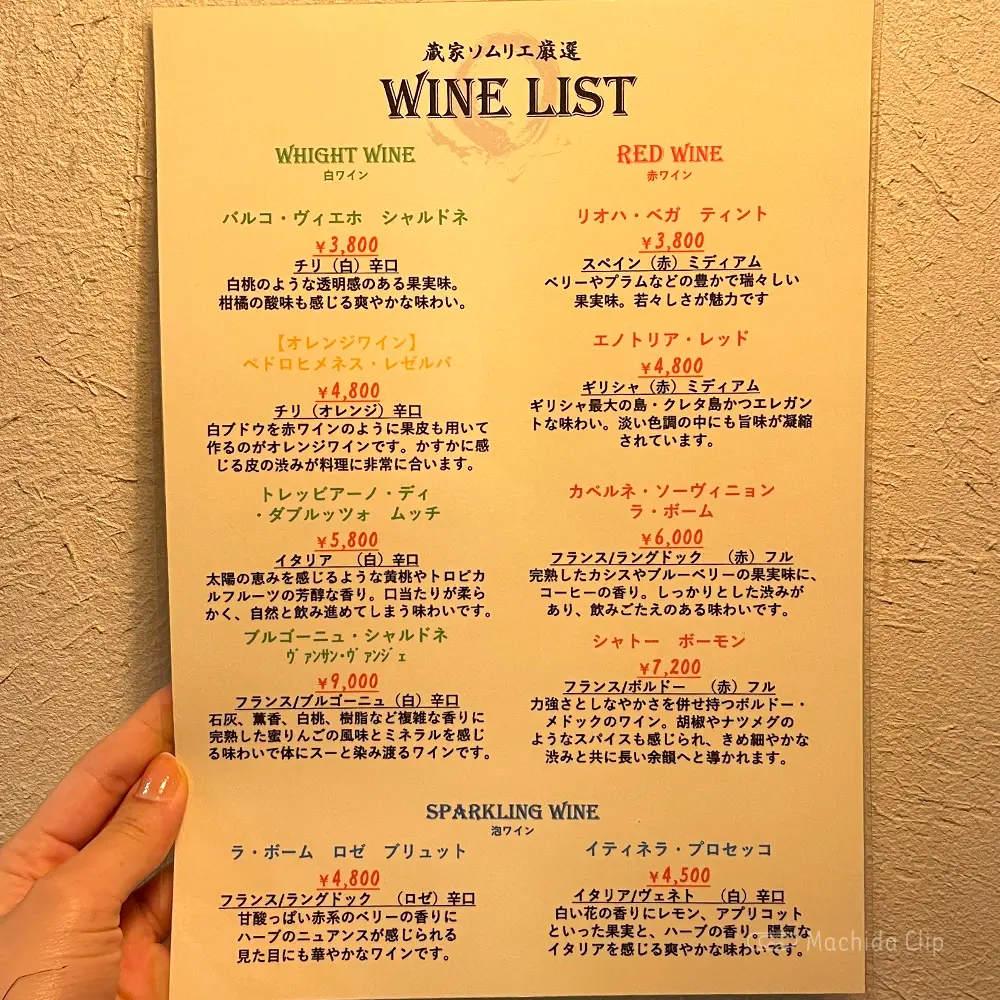 蔵家ソムリエ厳選
WINE LIST
WHIGHT WINE
白ワイン
バルコ・ヴィエホ　シャルドネ
¥3,800
チリ（白）辛口
白桃のような透明感のある果実味。
柑橘の酸味も感じる爽やかな味わい。
【オレンジワイン】
ペドロヒメネス・レゼルバ
¥4,800
チリ（オレンジ）辛口
白ブドウを赤ワインのように果皮も用いて
作るのがオレンジワインです。かすかに感
じる皮の渋みが料理に非常に合います。
トレッビアーノ・ディ
・ダブルッツォ　ムッチ
¥5,800
イタリア　（白）辛口
太陽の恵みを感じるような黄桃やトロピカ
ルフルーツの芳醇な香り。口当たりが柔ら
かく、自然と飲み進めてしまう味わいです。
ブルゴーニュ・シャルドネ
ヴァンサン・ヴァンジェ
¥9,000
フランス/ブルゴーニュ（白）辛口
石灰、薫香、白桃、樹脂など複雑な香りに
完熟した蜜りんごの風味とミネラルを感じ
る味わいで体にスーと染み渡るワインです。
RED WINE
赤ワイン
リオハ・ベガ　ティント
¥3,800
スペイン（赤）ミディアム
ベリーやプラムなどの豊かで瑞々しい
果実味。若々しさが魅力です
エノトリア・レッド
¥4,800
ギリシャ（赤）ミディアム
ギリシャ最大の島・クレタ島かつエレガン
トな味わい。淡い色調の中にも旨味が凝縮
されています。
カベルネ・ソーヴィニョン
ラ・ボーム
¥6,000
フランス/ラングドック　（赤）フル
完熟したカシスやブルーベリーの果実味に、
コーヒーの香り。しっかりとした渋みが
あり、飲みごたえのある味わいです。
シャトー　ボーモン
¥7,200
フランス/ボルドー　（赤）フル
力強さとしなやかさを併せ持つボルドー・
メドックのワイン。胡椒やナツメグの
ようなスパイスも感じられ、きめ細やかな
渋みと共に長い余韻へと導かれます。
SPARKLING WINE
泡ワイン
ラ・ボーム　ロゼ　ブリュット
¥4,800
フランス/ラングドック　（ロゼ）辛口
甘酸っぱい赤系のベリーの香りに
ハーブのニュアンスが感じられる
見た目にも華やかなワインです。
イティネラ・プロセッコ
¥4,500
イタリア/ヴェネト　（白）辛口
白い花の香りにレモン、アプリコット
といった果実と、ハーブの香り。陽気な
イタリアを感じる爽やかな味わいです。
Machida Clip